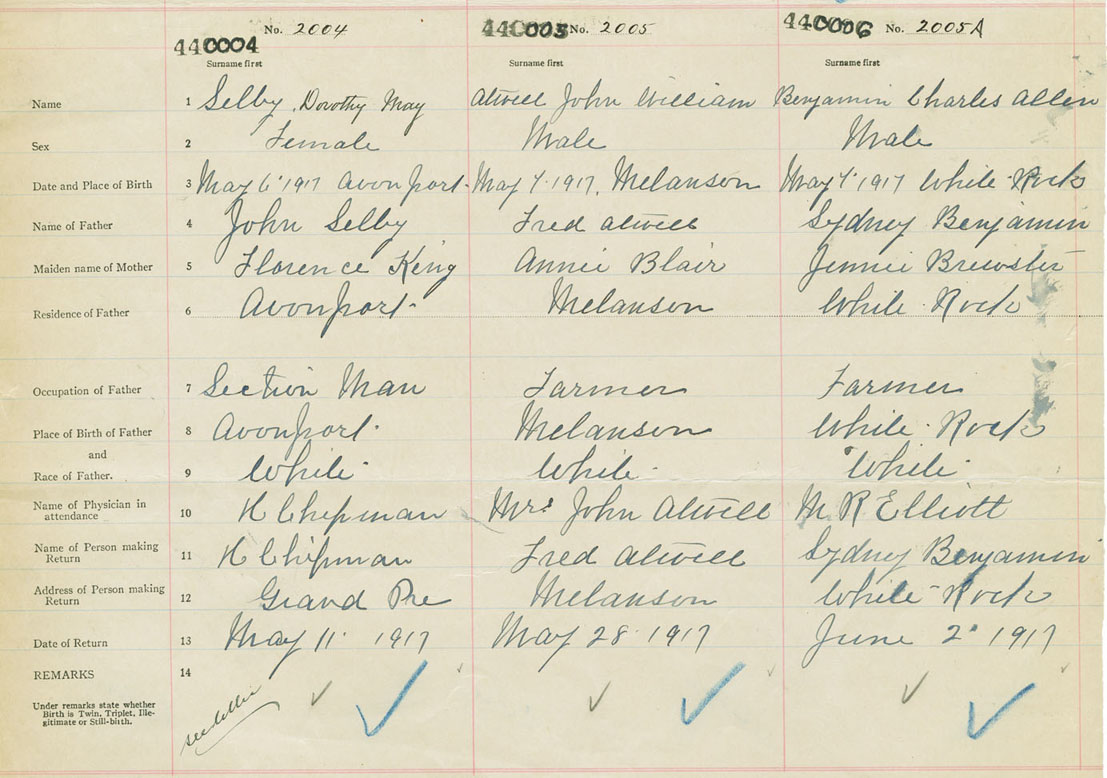 No. 2004 No. 2005 No. 2005A
440004 440005 440006
Surname first Surname first Surname first
Name 1 Selby, Dorothy May Atwell John William Benjamin Charles Allen
Sex 2 Female Male Male
Date and Place of Birth 3 May 6 1917 Avonport. May 7 1917, Melanson May 7 1917 White Rock
Name of Father 4 John Selby Fred Atwell Sydney Benjamin
Maiden name of Mother 5 Florence King Annie Blair Jennie Brewster
Residence of Father 6 Avonport. Melanson White Rock
Occupation of Father 7 Section Man Farmer Farmer
Place of Birth of Father 8 Avonport. Melanson White Rock
and
Race of Father. 9 White White White
Name of Physician in
attendance 10 H Chipman Mrs John Atwell M R Elliott
Name of Person making
Return 11 H Chipman Fred Atwell Sydney Benjamin
Address of Person making
Return 12 Grand Pre Melanson White Rock
Date of Return 13 May 11 1917 May 28 1917 June 2 1917
REMARKS 14
Under remarks state whether
Birth is Twin, Triplet, Ille-
gitimate or Still-birth.
see letter